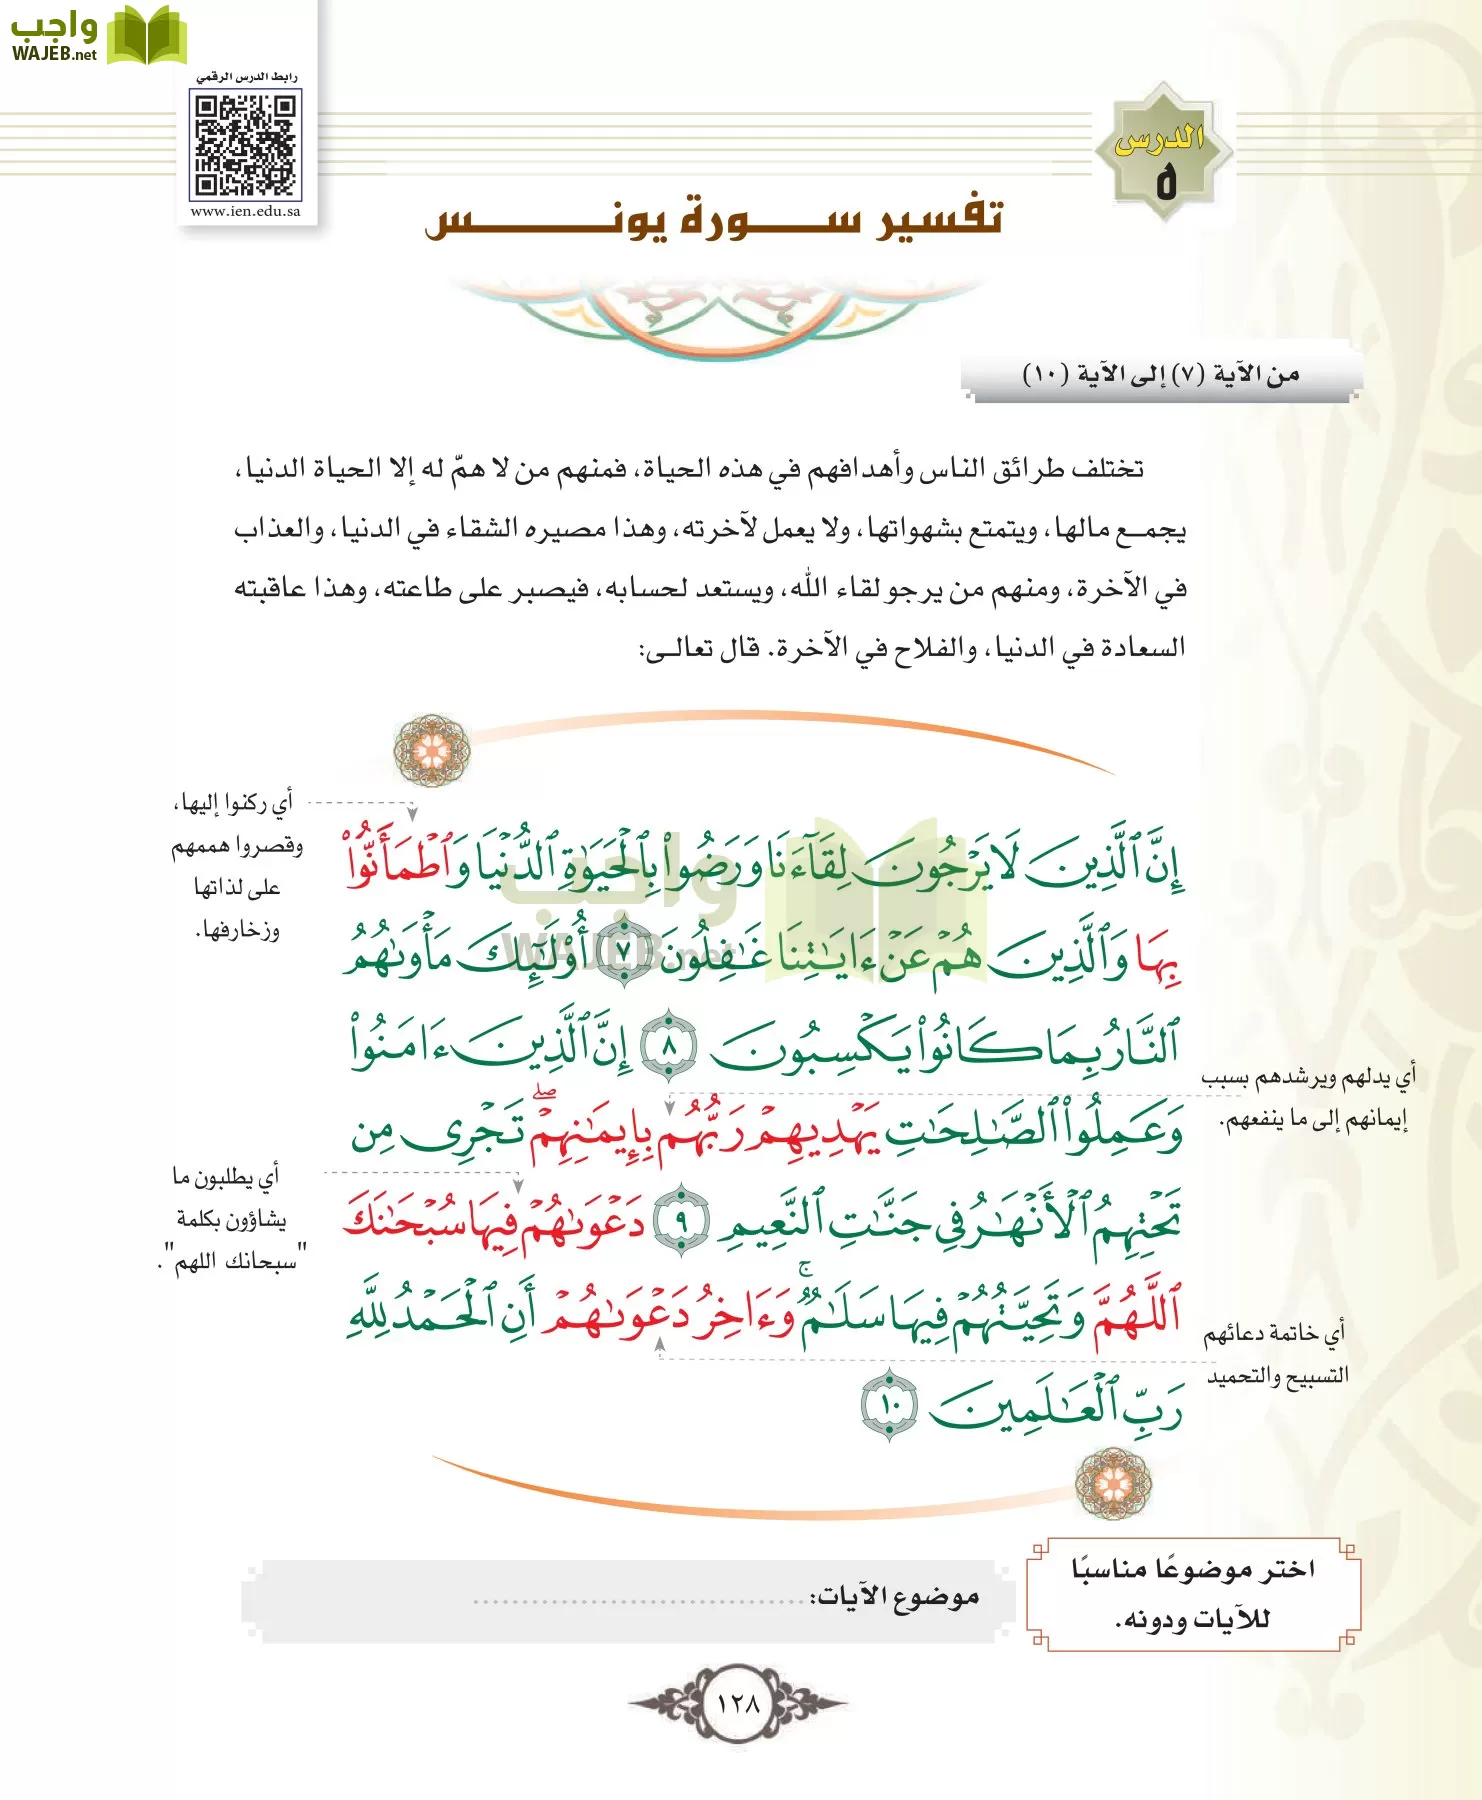 واجب
WAJEB.net
رابط الدرس الرقمي
www.ien.edu.sa
الدرس
٥
تفسير سورة يونس
من الآية (٧) إلى الآية (١٠)
تختلف طرائق الناس وأهدافهم في هذه الحياة، فمنهم من لا همّ له إلا الحياة الدنيا،
يجمع مالها، ويتمتع بشهواتها، ولا يعمل لآخرته، وهذا مصيره الشقاء في الدنيا، والعذاب
في الآخرة، ومنهم من يرجو لقاء الله، ويستعد لحسابه، فيصبر على طاعته، وهذا عاقبته
السعادة في الدنيا، والفلاح في الآخرة. قال تعالى:
أي ركنوا إليها،
وقصروا هممهم
على لذاتها
وزخارفها.
إِنَّ ٱلَّذِينَ لَا يَرۡجُونَ لِقَآءَنَا وَرَضُواْ بِٱلۡحَيَوٰةِ ٱلدُّنۡيَا وَٱطۡمَأَنُّواْ
بِهَا وَٱلَّذِينَ هُمۡ عَنۡ ءَايَٰتِنَا غَٰفِلُونَ ٧ أُوْلَٰٓئِكَ مَأۡوَىٰهُمُ
ٱلنَّارُ بِمَا كَانُواْ يَكۡسِبُونَ ٨ إِنَّ ٱلَّذِينَ ءَامَنُواْ
وَعَمِلُواْ ٱلصَّٰلِحَٰتِ يَهۡدِيهِمۡ رَبُّهُم بِإِيمَٰنِهِمۡۖ تَجۡرِي مِن
تَحۡتِهِمُ ٱلۡأَنۡهَٰرُ فِي جَنَّٰتِ ٱلنَّعِيمِ ٩ دَعۡوَىٰهُمۡ فِيهَا سُبۡحَٰنَكَ
ٱللَّهُمَّ وَتَحِيَّتُهُمۡ فِيهَا سَلَٰمٞۚ وَءَاخِرُ دَعۡوَىٰهُمۡ أَنِ ٱلۡحَمۡدُ لِلَّهِ
رَبِّ ٱلۡعَٰلَمِينَ ١٠
أي يدلهم ويرشدهم بسبب
إيمانهم إلى ما ينفعهم.
أي يطلبون ما
يشاؤون بكلمة
"سبحانك اللهم".
أي خاتمة دعائهم
التسبيح والتحميد
واجب
WAJEB.net
اختر موضوعًا مناسبًا
للآيات ودونه.
موضوع الآيات: ..................................
١٢٨